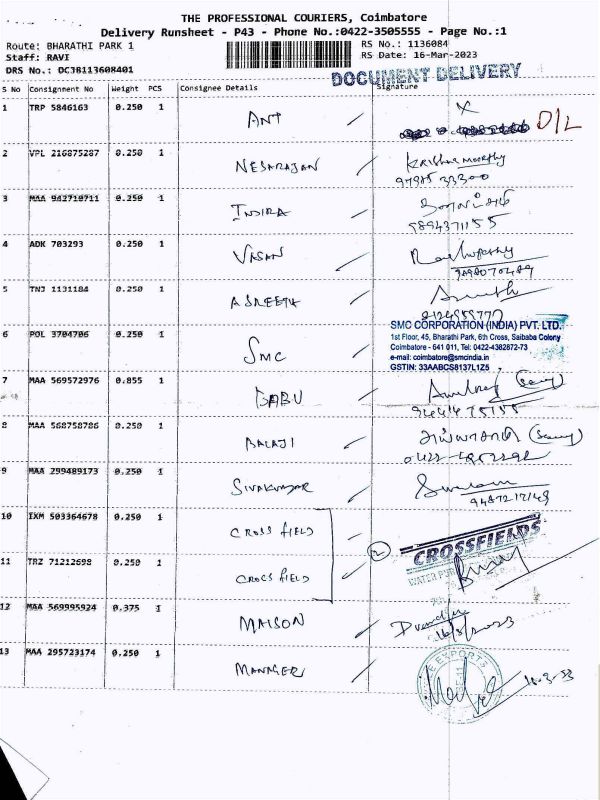 THE PROFESSIONAL COURIERS, Coimbatore
Delivery Runsheet - P43 - Phone No.:0422-3505555 - Page No.:1
Route: BHARATHI PARK 1
RS No.: 1136084
Staff: RAVI
RS Date: 16-Mar-2023
DRS No.: DCJB113608401
DOCUMENT DELIVERY
S No Consignment No Weight PCS Consignee Details Signature
1 TRP 5846163 0.250 1 ANT X D/L
2 VPL 216875287 0.250 1 NESARAJAN Krishnamoorthy
3 MAA 942710711 0.250 1 INDIRA
9894371155
4 ADK 703293 0.250 1 VASAN
9898070489
5 TNJ 1131184 0.250 1
6 POL 3704706 0.250 1 SMC
SMC CORPORATION (INDIA) PVT. LTD.
1st Floor, 45, Bharathi Park, 6th Cross, Saibaba Colony
Coimbatore - 641 011, Tel: 0422-4382872-73
e-mail: coimbatore@smcindia.in
GSTIN: 33AABCS8137L1Z5
7 MAA 569572976 0.855 1 BABU
8 MAA 568758786 0.250 1 BALAJI
9 MAA 299489173 0.250 1 SIVAKUMAR
10 IXM 503364678 0.250 1 CROSS FIELD
2 CROSSFIELDS
WATER
11 TRZ 71212698 0.250 1 CROCS FIELD
12 MAA 569995924 0.375 1 MAISON
16/3/2023
13 MAA 295723174 0.250 1 MANAGER
EXPORTS